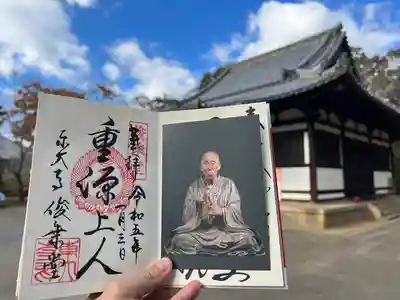 奉拝 令和五年
月三日
重源上人
東大寺 俊乗堂